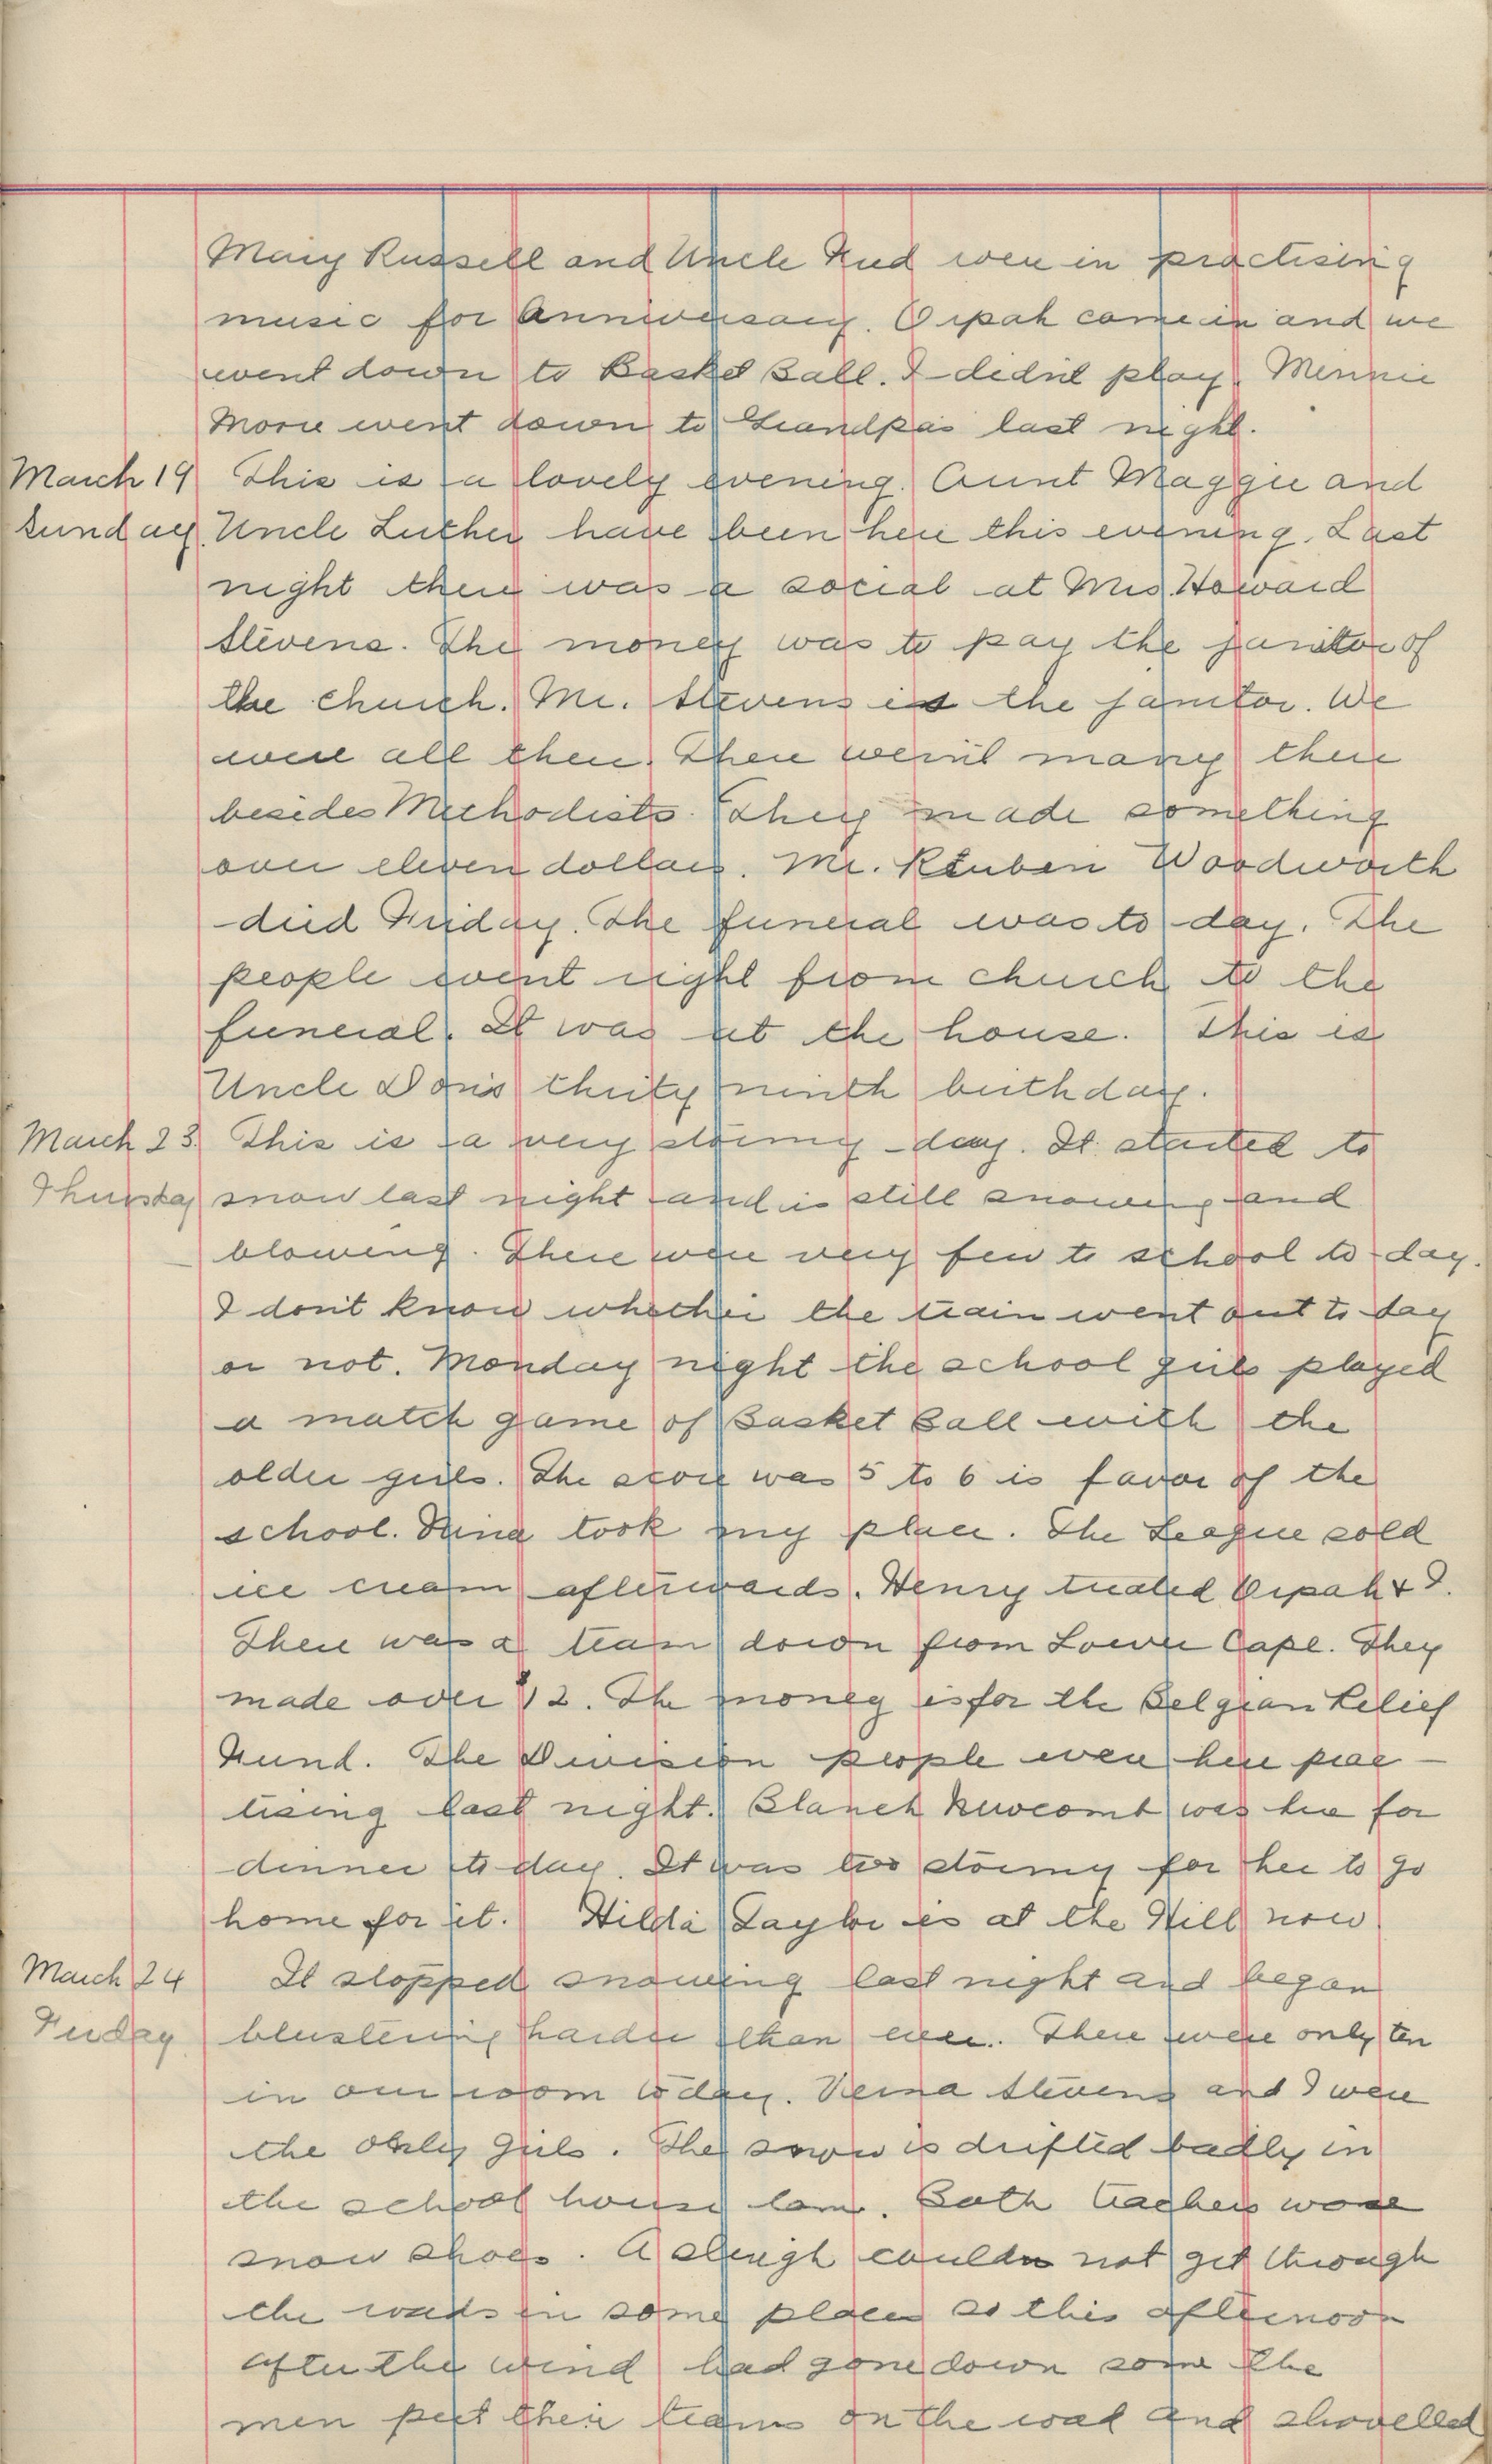 Mary Russell and Uncle Fud were in practising
music for Anniversary. Orpah came in and we
went down to Basket Ball. I didn't play. Minnie
More went down to Grandpa's last night.
March 19 This is a lovely evening. Aunt Maggie and
Sunday. Uncle Luther have been here this evening. Last
night there was a social at Mrs. Howard
Stevens. The money was to pay the janitor of
the church. Mr. Stevens is the janitor. We
were all there. There weren't many there
besides Methodists. They made something
over eleven dollars. Mr. Reuben Woodworth
died Friday. The funeral was to-day. The
people went right from church to the
funeral. It was at the house. This is
Uncle Don's thirty ninth birthday.
March 23. This is a very stormy day. It started to
Thursday snow last night and is still snowing and
blowing. There were very few to school to-day.
I don't know whether the train went out to-day
or not. Monday night the school girls played
a match game of Basket Ball with the
older girls. The score was 5 to 6 is favor of the
school. took my place. The League sold
ice cream afterwards. Henry treated Orpah & I.
There was a team down from Lower Cape. They
made over $12. The money is for the Belgian Relief
Fund. The Division people were here prac-
tising last night. Blanch Newcomb was here for
dinner to-day. It was too stormy for her to go
home for it. Hilda Taylor is at the Hill now
March 24 It stopped snowing last night and began
Friday blustering harder than ever. There were only ten
in our room to day. Verna Stevens and I were
the only girls. The snow is drifted badly in
the school house lane. Both teachers wore
snow shoes. A sleigh could not get through
the roads in some places so this afternoon
after the wind had gone down some the
men put their teams on the road and shovelled